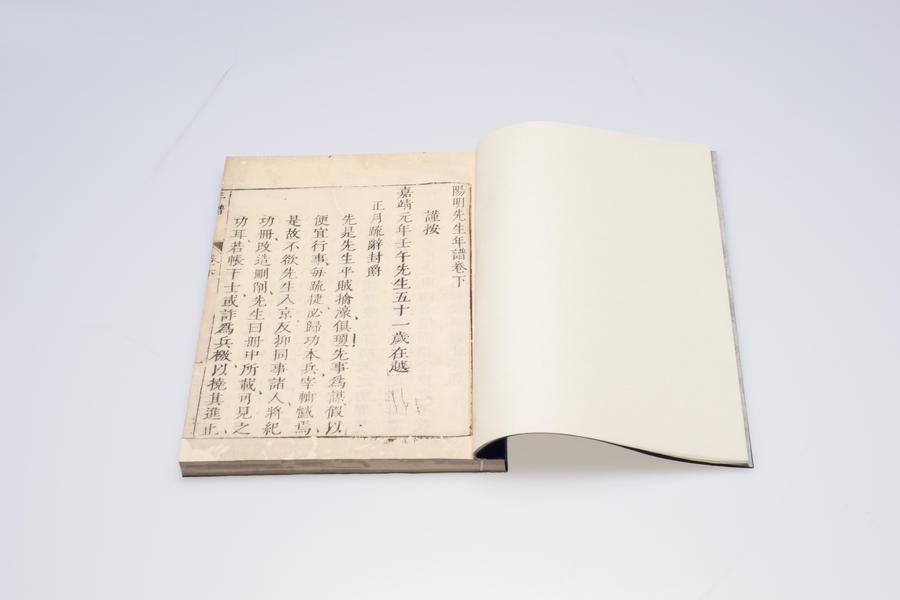 陽明先生年譜卷下
謹按
嘉靖元年壬午先生五十一歲在越
正月疏辭封爵
先是先生平賊擒濠俱瓊先事爲謀假以
便宜行事每疏捷必歸功本兵宰輔憾焉
是故不欲先生入京反抑同事諸人將紀
功冊改造刪削先生曰冊中所載可見之
功耳若帳下士或詐爲兵檄以撓其進止